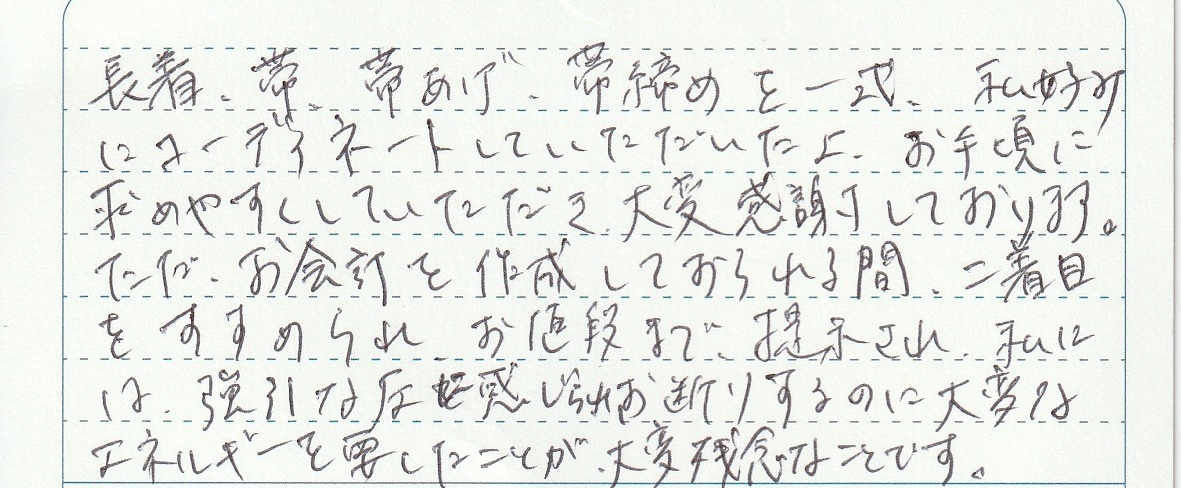 長着、帯、帯あげ、帯締めを一式、私好み
にコーディネートしていただいた上、お手頃に
求めやすくしていただき、大変感謝しております。
ただ、お会計を作成しておられる間、二着目
をすすめられ、お値段まで、提示され、私に
は、強引な圧を感じられお断りするのに大変な
エネルギーを要したことが、大変残念なことです。